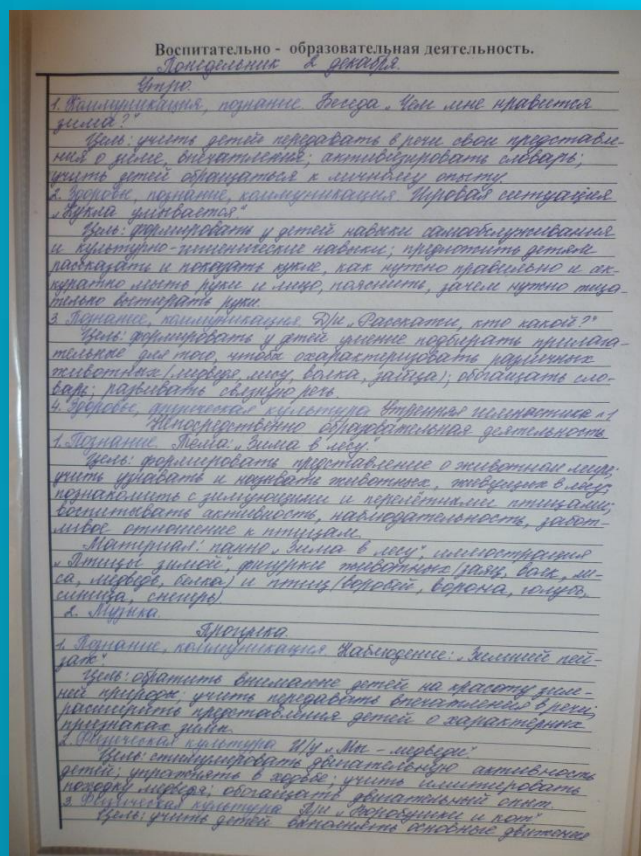 Воспитательно - образовательная деятельность.
Понедельник 2 декабря.
Утро.
1. Коммуникация, познание. Беседа „Чем мне нравится
зима?"
Цель: учить детей передавать в речи свои представле-
ния о зиме, впечатления; активизировать словарь;
учить детей обращаться к личному опыту.
2. Здоровье, познание, коммуникация. Игровая ситуация
„Кукла умывается"
Цель: формировать у детей навыки самообслуживания
и культурно-гигиенические навыки; предложить детям
рассказать и показать кукле, как нужно правильно и ак-
куратно мыть руки и лицо, пояснить, зачем нужно тща-
тельно вытирать руки.
3. Познание, коммуникация. Д/и „Расскажи, кто какой?"
Цель: формировать у детей умение подбирать прилага-
тельные для того, чтобы охарактеризовать различных
животных (медведя, лису, волка, зайца); обогащать сло-
варь; развивать связную речь.
4. Здоровье, физическая культура Утренняя гимнастика №1
Непосредственно образовательная деятельность
1. Познание. Тема: „Зима в лесу".
Цель: формировать представление о животном мире;
учить узнавать и называть животных, живущих в лесу;
познакомить с зимующими и перелётными птицами;
воспитывать активность, наблюдательность, забот-
ливое отношение к птицам.
Материал: панно „Зима в лесу", иллюстрация
„Птицы зимой, фигурки животных (заяц, волк, ли-
са, медведь, белка) и птиц (воробей, ворона, голубь,
синица, снегирь)
2. Музыка.
Прогулка.
1. Познание, коммуникация. Наблюдение: „Зимний пей-
заж".
Цель: обратить внимание детей на красоту зим-
ней природы: учить передавать впечатления в речи;
расширять представления детей о характерных
признаках зимы.
2. Физическая культура И/у „Мы - медведи".
Цель: стимулировать двигательную активность
детей; упражнять в ходьбе; учить имитировать
походку медведя; обогащать двигательный опыт.
3. Физическая культура П/и „Воробушки и кот"
Цель: учить детей выполнять основные движения